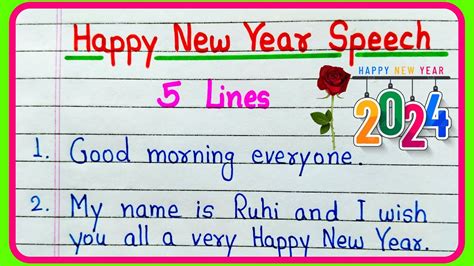 Happy New Year Speech
5 Lines
HAPPY NEW YEAR
2024
1. Good morning everyone.
2. My name is Ruhi and I wish
you all a very Happy New Year.